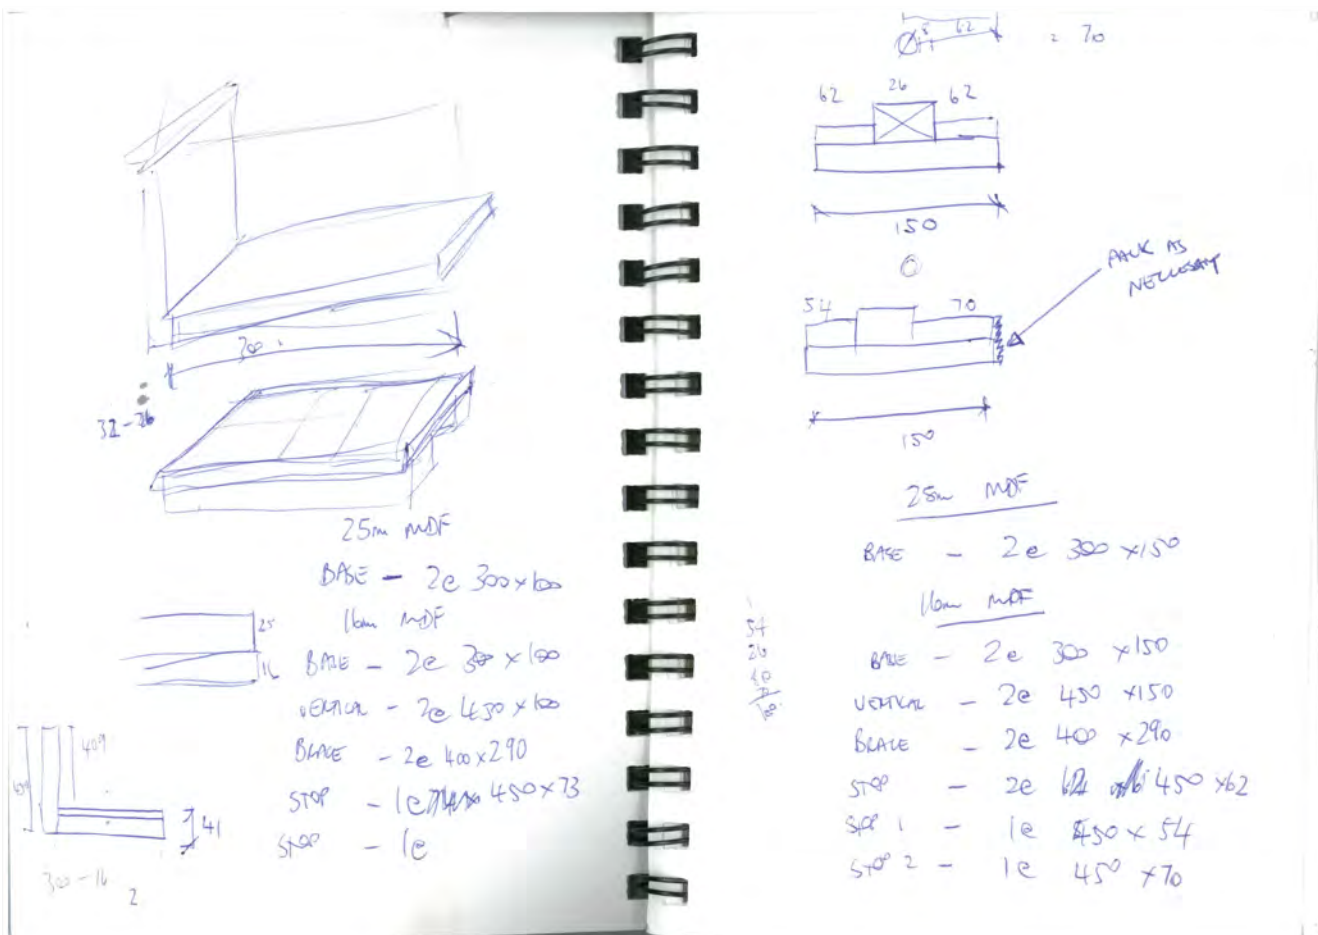 300
32-26
25mm MDF
BASE - 2e 300x100
16mm MDF
25
16
BASE - 2e 300 x 100
VERTICAL - 2e 450 x 100
BRACE - 2e 400x290
STOP - 1e 450x73
STOP - 1e
409
41
300-16
2
8 62
= 70
62 26 62
150
54 70
PACK AS
NECESSARY
150
25mm MDF
BASE - 2e 300 x150
16mm MDF
54
26
BASE - 2e 300 x150
VERTICAL - 2e 450 x150
BRACE - 2e 400 x290
STOP - 2e 450 x62
STOP 1 - 1e 450 x 54
STOP 2 - 1e 450 x70